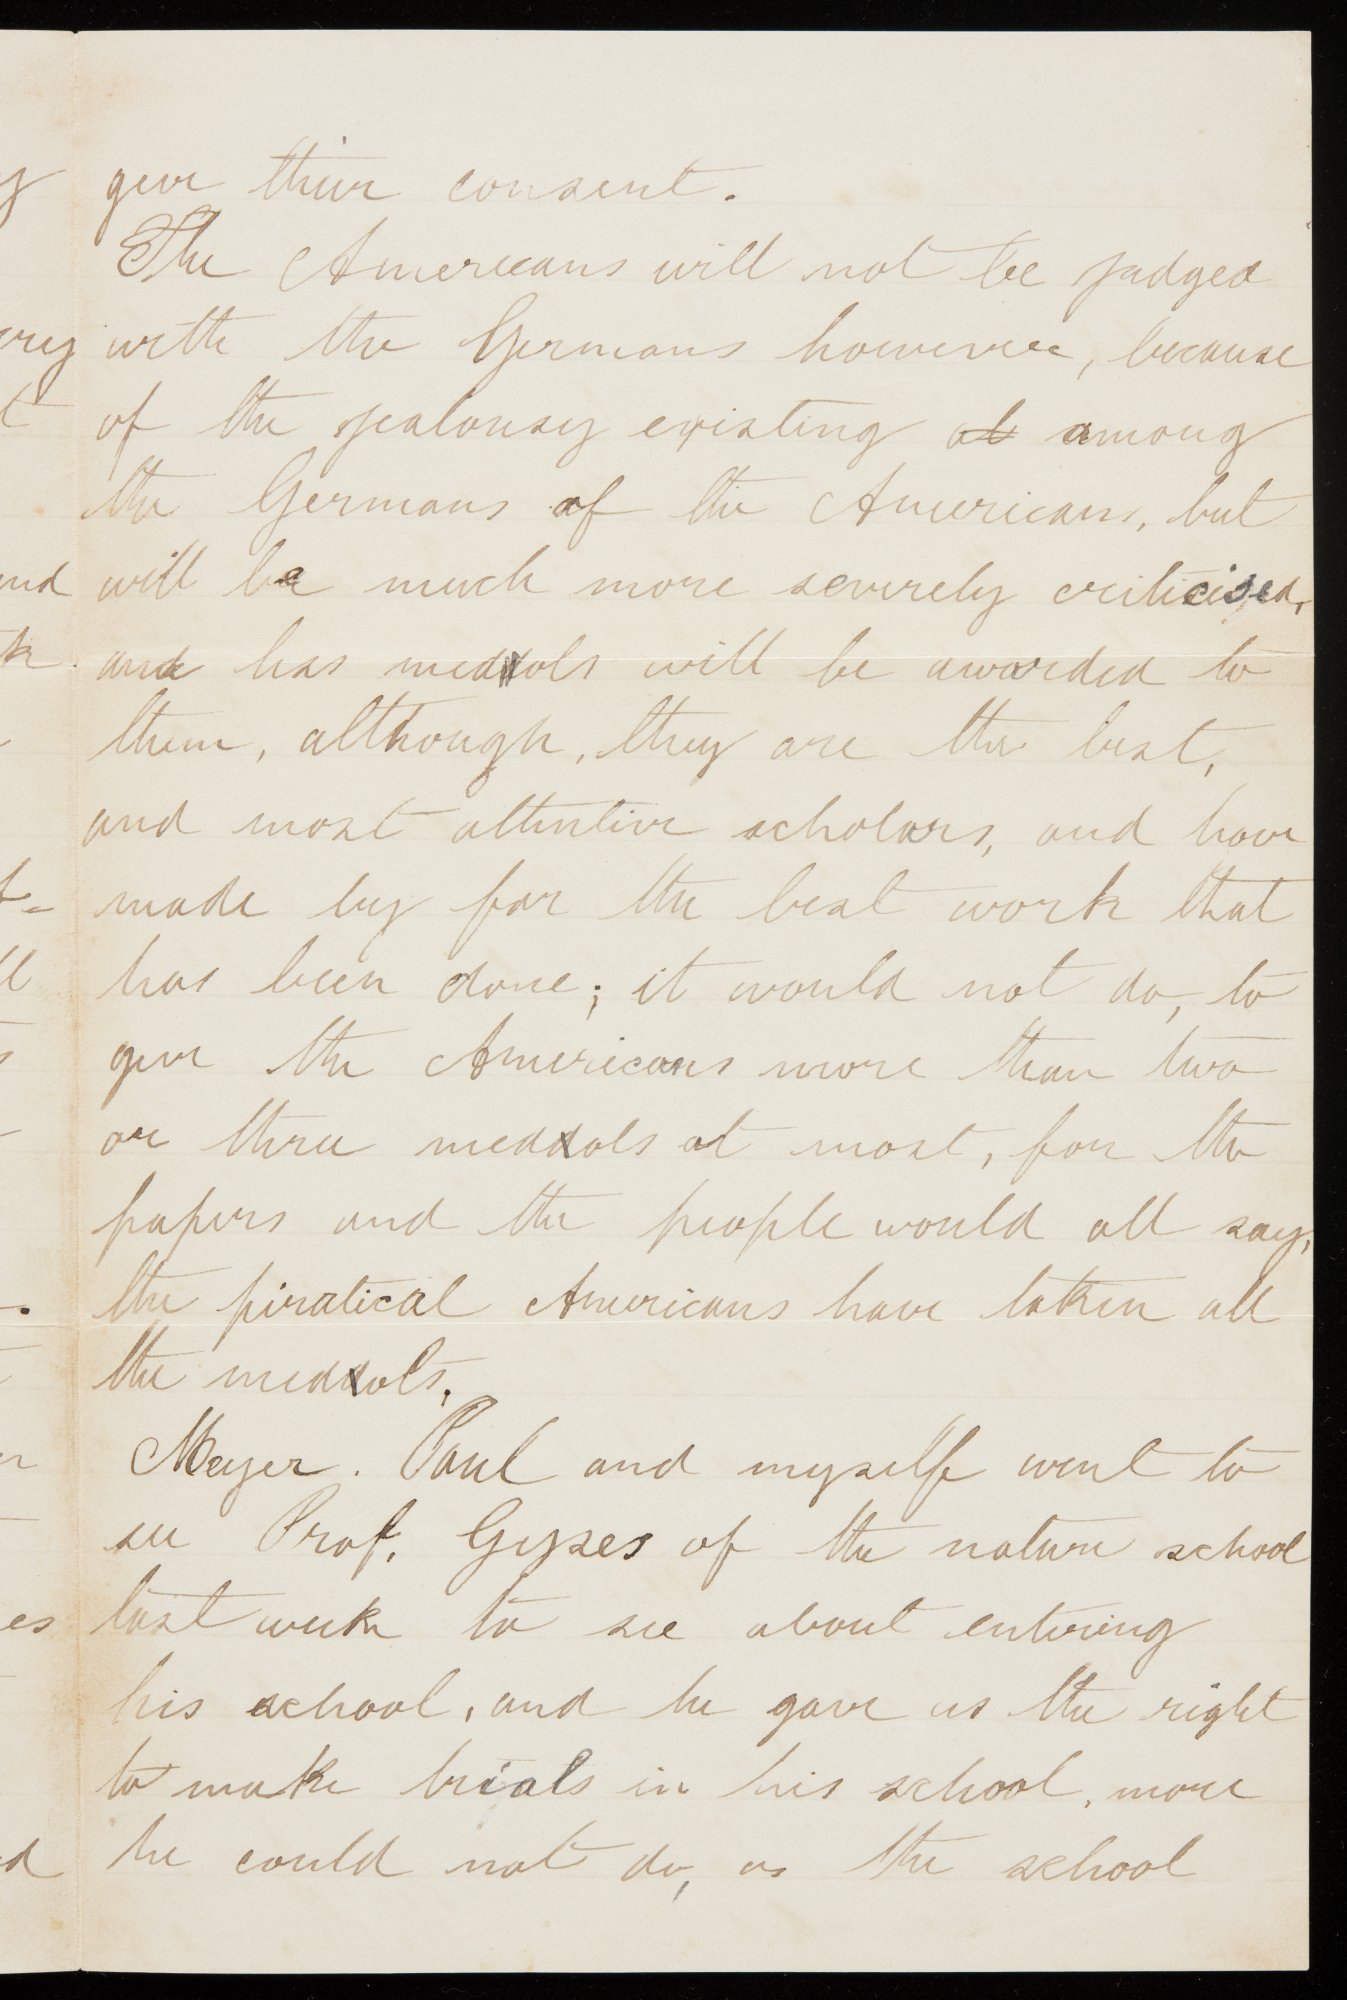 give their consent.
The Americans will not be judged
with the Germans however, because
of the jealousy existing at among
the Germans of the Americans, but
will be much more severely criticised,
and less medals will be awarded to
them, although, they are the best,
and most attentive scholars, and have
made by far the best work that
has been done; it would not do, to
give the Americans more than two
or three medals at most, for the
papers and the people would all say,
the piratical Americans have taken all
the medals.
Meyer. Paul and myself went to
see Prof. Gyses of the nature school
last week to see about entering
his school, and he gave us the right
to make trials in his school, more
he could not do, as the school